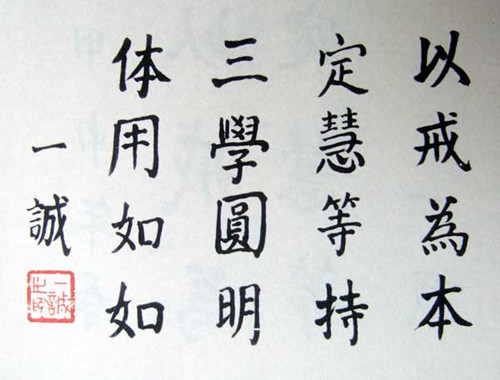 以戒為本
定慧等持
三學圓明
体用如如
一誠
一誠之印